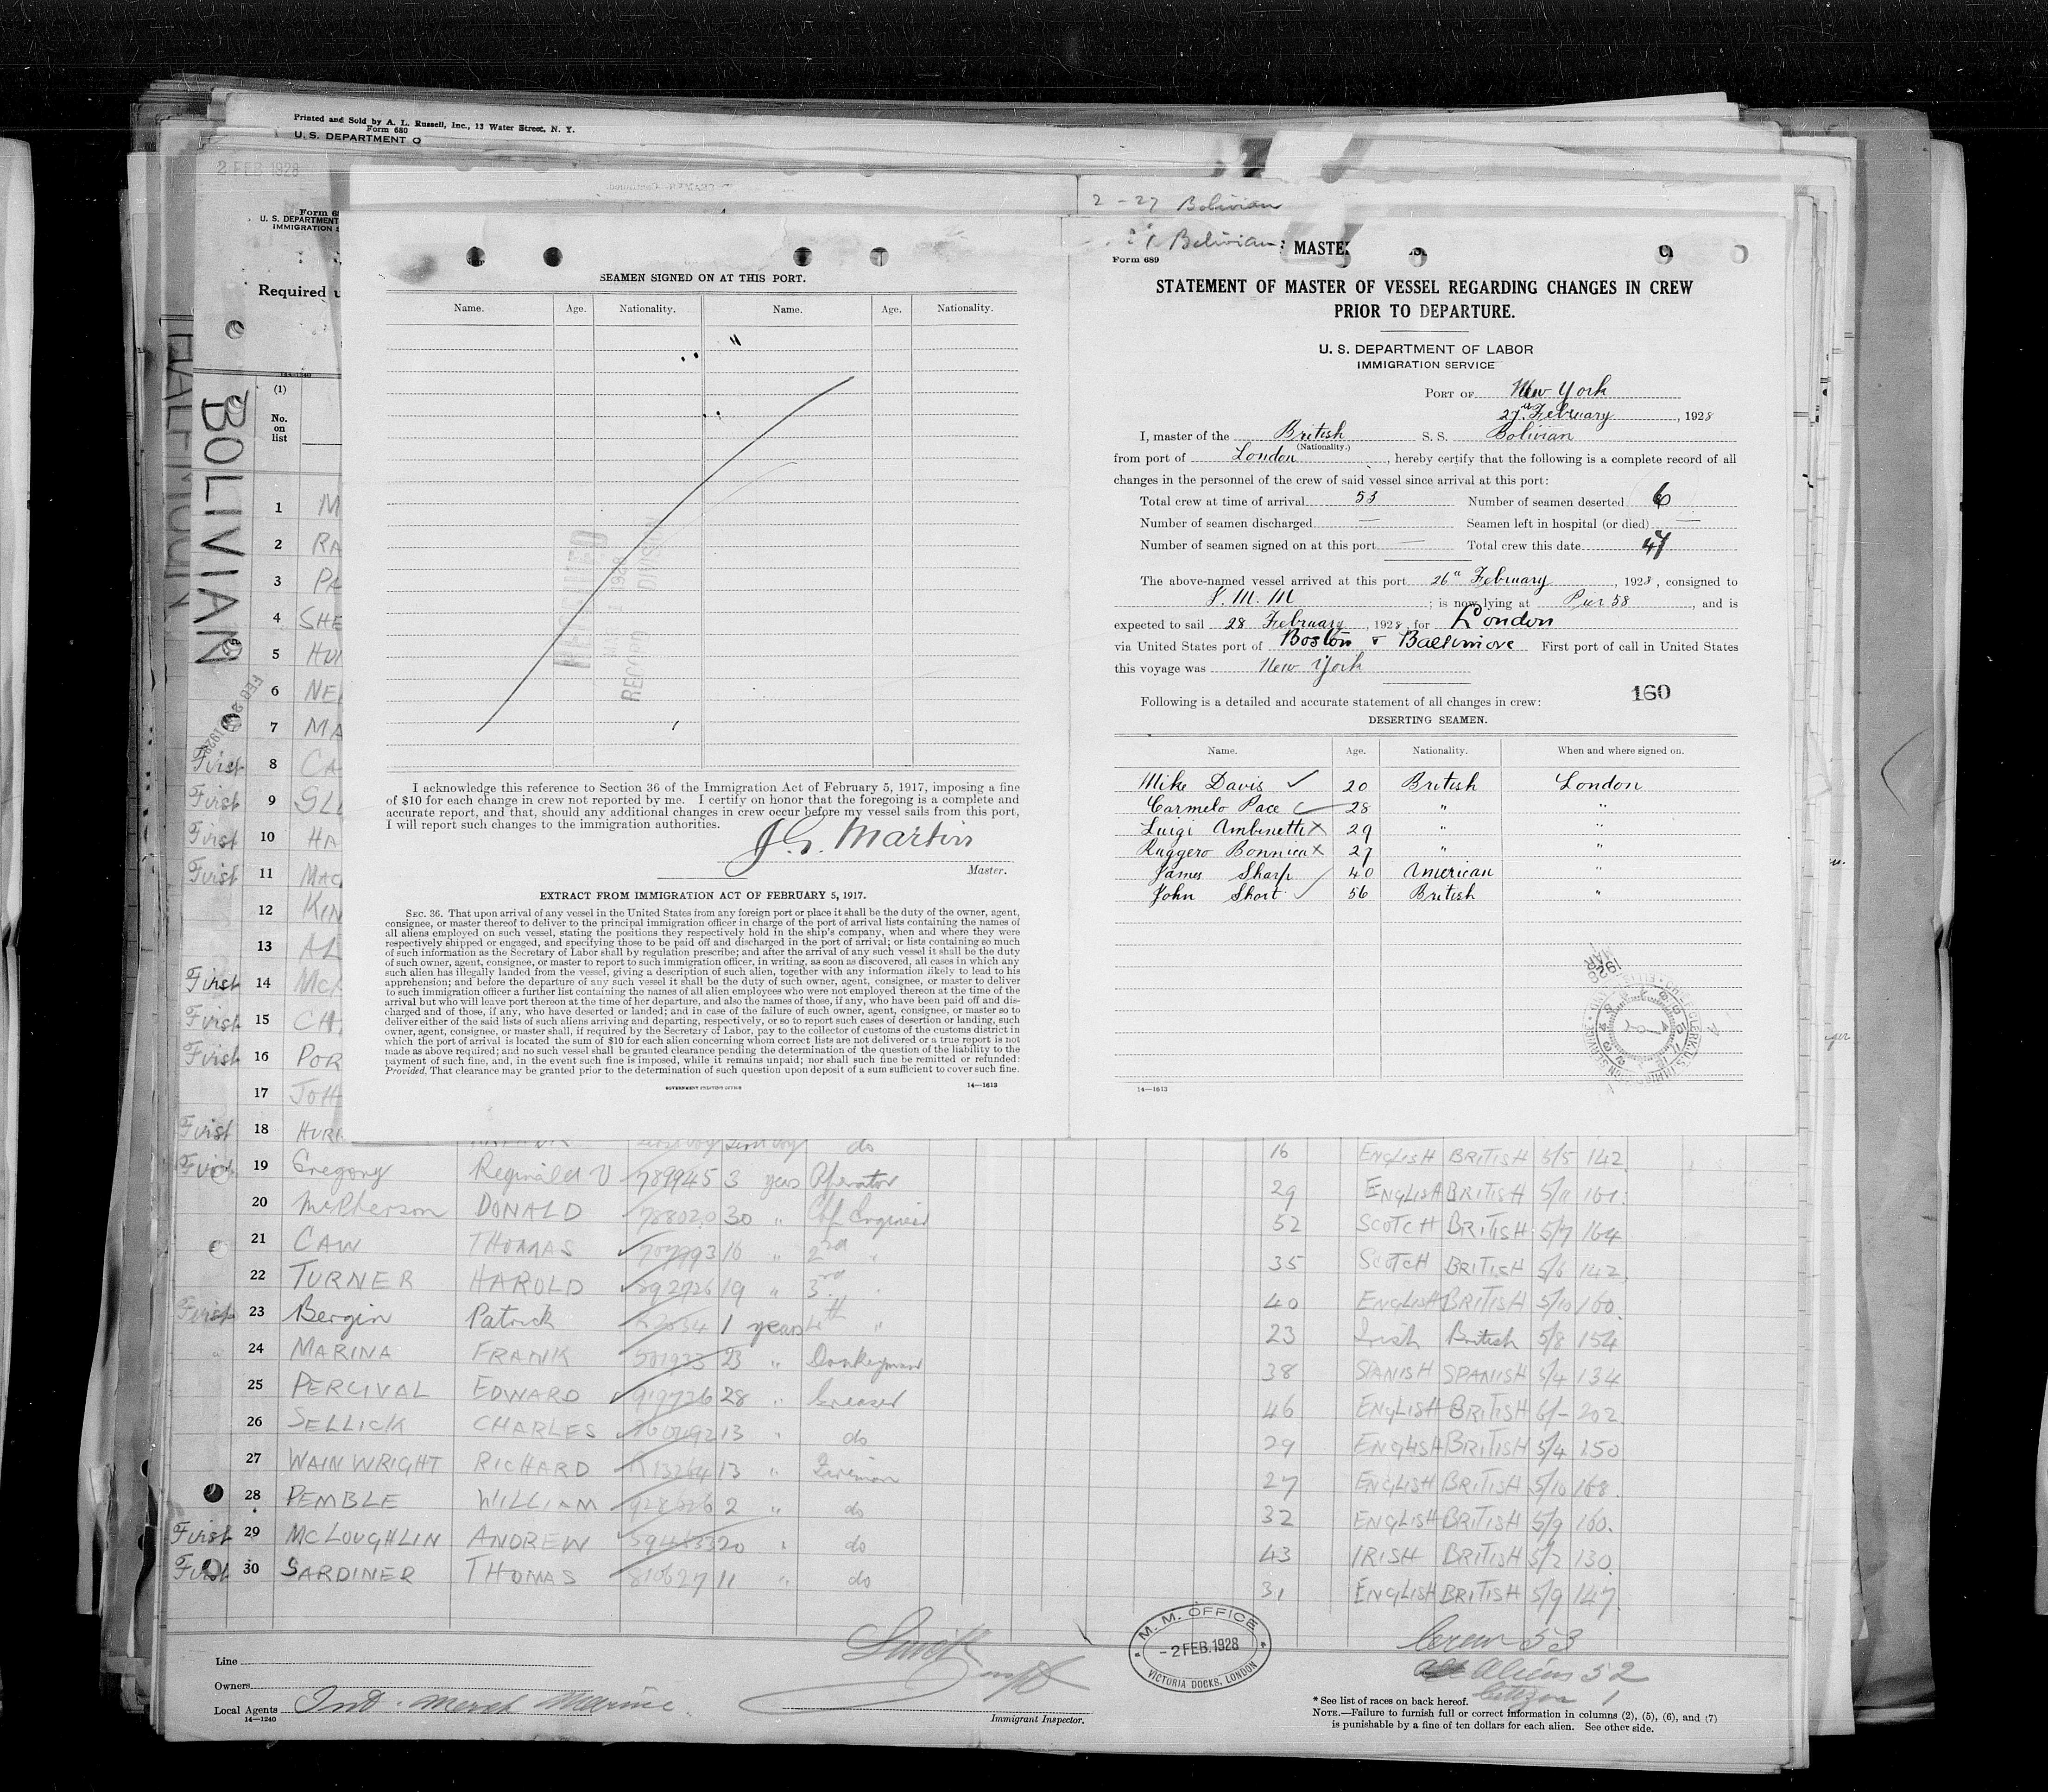 Printed and Sold by A. L. Russell, Inc., 12 Water Street, N. Y.
Form 680
U. S. DEPARTMENT O
2 FEB 1928
U. S. DEPARTMENT
Required
BOLIVIAN
(1)
No. on list
2 - 27 Bolivian
SEAMEN SIGNED ON AT THIS PORT.
Name. Age. Nationality. Name. Age. Nationality.
RECORD DIVISION
I acknowledge this reference to Section 36 of the Immigration Act of February 5, 1917, imposing a fine
of $10 for each change in crew not reported by me. I certify on honor that the foregoing is a complete and
accurate report, and that, should any additional changes in crew occur before my vessel sails from this port,
I will report such changes to the immigration authorities.
J. G. Martin
Master.
EXTRACT FROM IMMIGRATION ACT OF FEBRUARY 5, 1917.
SEC. 36. That upon arrival of any vessel in the United States from any foreign port or place it shall be the duty of the owner, agent,
consignee, or master thereof to deliver to the principal immigration officer in charge of the port of arrival lists containing the names of
all aliens employed on such vessel, stating the positions they respectively hold in the ship's company, when and where they were
respectively shipped or engaged, and specifying those to be paid off and discharged in the port of arrival; or lists containing so much
of such information as the Secretary of Labor shall by regulation prescribe; and after the arrival of any such vessel it shall be the duty
of such owner, agent, consignee, or master to report to such immigration officer, in writing, as soon as discovered, all cases in which any
such alien has illegally landed from the vessel, giving a description of such alien, together with any information likely to lead to his
apprehension; and before the departure of any such vessel it shall be the duty of such owner, agent, consignee, or master to deliver
to such immigration officer a further list containing the names of all alien employees who were not employed thereon at the time of the
arrival but who will leave port thereon at the time of her departure, and also the names of those, if any, who have been paid off and dis-
charged and of those, if any, who have deserted or landed; and in case of the failure of such owner, agent, consignee, or master so to
deliver either of the said lists of such aliens arriving and departing, respectively, or so to report such cases of desertion or landing, such
owner, agent, consignee, or master shall, if required by the Secretary of Labor, pay to the collector of customs of the customs district in
which the port of arrival is located the sum of $10 for each alien concerning whom correct lists are not delivered or a true report is not
made as above required; and no such vessel shall be granted clearance pending the determination of the question of the liability to the
payment of such fine, and, in the event such fine is imposed, while it remains unpaid; nor shall such fine be remitted or refunded:
Provided, That clearance may be granted prior to the determination of such question upon deposit of a sum sufficient to cover such fine.
GOVERNMENT PRINTING OFFICE 14—1613
Bolivian
Form 689
STATEMENT OF MASTER OF VESSEL REGARDING CHANGES IN CREW
PRIOR TO DEPARTURE.
U. S. DEPARTMENT OF LABOR
IMMIGRATION SERVICE
PORT OF New York
27th February, 1928
I, master of the British S. S. Bolivian
(Nationality.)
from port of London, hereby certify that the following is a complete record of all
changes in the personnel of the crew of said vessel since arrival at this port:
Total crew at time of arrival 53 Number of seamen deserted 6
Number of seamen discharged — Seamen left in hospital (or died) —
Number of seamen signed on at this port — Total crew this date 47
The above-named vessel arrived at this port 26th February, 1928, consigned to
I. M. M; is now lying at Pier 58, and is
expected to sail 28 February, 1928, for London
via United States port of Boston & Baltimore First port of call in United States
this voyage was New York
160
Following is a detailed and accurate statement of all changes in crew:
DESERTING SEAMEN.
Name. Age. Nationality. When and where signed on.
Mike Davis ✓ 20 British London
Carmelo Pace ✓ 28 " "
Luigi Ambinetti x 29 " "
Ruggero Bonnica x 27 " "
James Sharp ✓ 40 American "
John Short ✓ 56 British "
14—1613
1
2 RA
3 PA
4 SHE
5
6 NE
7 MA
First 8 CA
First 9
First 10 HA
First 11 MAC
12 KIN
13 AL
First 14 McK
First 15 CH
First 16 POR
17 JOH
First 18 HURR do 16 ENGLISH BRITISH 5/5 142
First 19 Gregory Reginald V 789945 3 years Operator 29 ENGLISH BRITISH 5/11 161
20 McPherson DONALD 788020 30 " Chf Engineer 52 SCOTCH BRITISH 5/7 164
21 CAW THOMAS 16 " 2nd " 35 SCOTCH BRITISH 5/6 142
22 TURNER HAROLD 892726 19 " 3rd " 40 ENGLISH BRITISH 5/10 160
First 23 Bergin Patrick 1 years 4th " 23 Irish British 5/8 154
24 MARINA FRANK 501933 23 " Donkeyman 38 SPANISH SPANISH 5/4 134
25 PERCIVAL EDWARD 919726 28 " Greaser 46 ENGLISH BRITISH 6/- 202
26 SELLICK CHARLES 13 " do 29 ENGLISH BRITISH 5/4 150
27 WAINWRIGHT RICHARD 13 " Fireman 27 ENGLISH BRITISH 5/10 168
28 PEMBLE WILLIAM 2 " do 32 ENGLISH BRITISH 5/9 160
First 29 McLOUGHLIN ANDREW 20 " do 43 IRISH BRITISH 5/2 130
First 30 SARDINER THOMAS 810627 11 " do 31 ENGLISH BRITISH 5/9 147
Line
Owners
Local Agents Int. Merch Marine
14—1240
Immigrant Inspector.
M. M. OFFICE
- 2 FEB. 1928
VICTORIA DOCKS, LONDON
Crew 53
Aliens 52
Citizen 1
* See list of races on back hereof.
NOTE.—Failure to furnish full or correct information in columns (2), (5), (6), and (7)
is punishable by a fine of ten dollars for each alien. See other side.